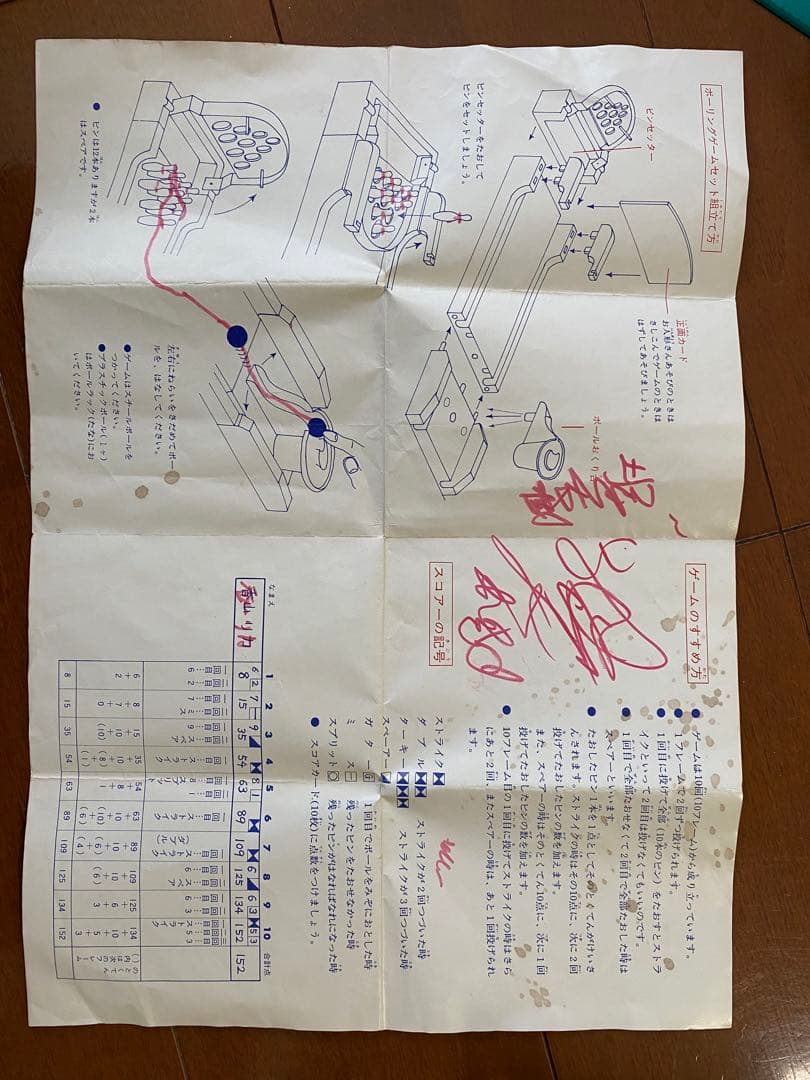 ボーリングゲームセット組立て方
ピンセッター
正面カード
お人形さんあそびのときは
さしこんでゲームのときは
はずしてあそびましょう。
ボールおくり台
ピンセッターをたおして
ピンをセットしましょう。
●ピンは12本ありますが2本
はスペアです。
左右にねらいをさだめてボー
ルを、はなしてください。
●ゲームはスチールボールを
つかってください。
●プラスチックボール(1ヶ)
はボールラック(たな)にお
いてください。
ゲームのすすめ方
●ゲームは10回(10フレーム)から成り立っています。
●1フレームで2回ずつ投げられます。
●1回目に投げて全部(10本のピン)をたおすとストラ
イクといって2回目は投げなくてもいいのです。
●1回目で全部たおせなくて2回目で全部たおした時は
スペアーといいます。
●たおしたピン1本を1点としてそのとくてんがけいさ
んされます。ストライクの時はその10点に、次に2回
投げてたおしたピンの数を加えます。
また、スペアーの時はそのとくてん10点に、次に1回
投げてたおしたピンの数を加えます。
●10フレーム目の1回目に投げてストライクの時はさら
にあと2回、またスペアーの時は、あと1回投げられ
ます。
スコアーの記号
ストライク
ダブル ストライクが2回つづいた時
ターキー ストライクが3回つづいた時
スペアー
ガター G 1回目でボールをみぞにおとした時
ミス 残ったピンをたおせなかった時
スプリット 残ったピンがはなればなれになった時
●スコアカード(10枚)に点数をつけましょう。
なまえ 1 2 3 4 5 6 7 8 9 10 合計点
香山リカ
6 2 7 9 8 1 6 6 3 5 3
8 15 35 54 63 89 109 125 134 152 152
8 15 35 54 63 89 109 125 134 152